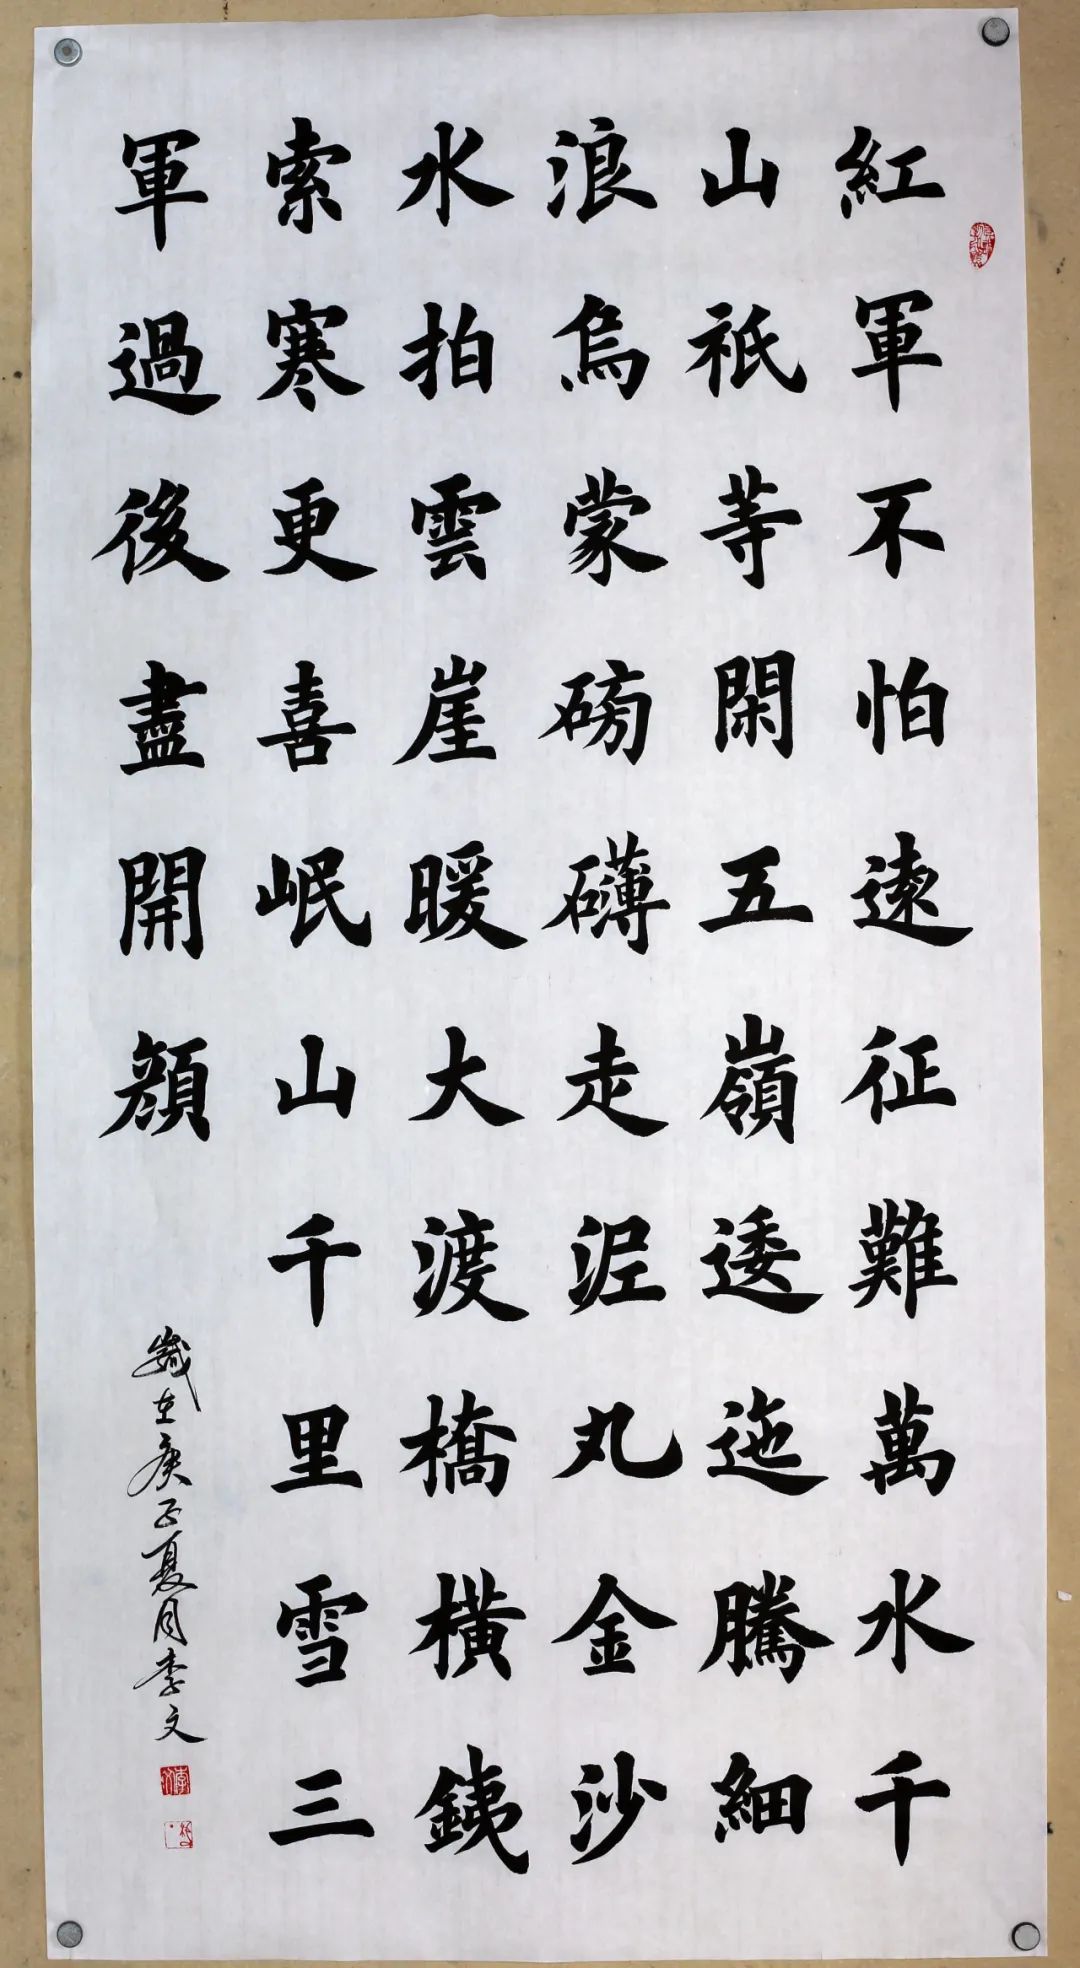 紅軍不怕遠征難萬水千
山祇等閑五嶺逶迤騰細
浪烏蒙磅礴走泥丸金沙
水拍雲崖暖大渡橋橫鐵
索寒更喜岷山千里雪三
軍過後盡開顏
歲在庚子夏月李文